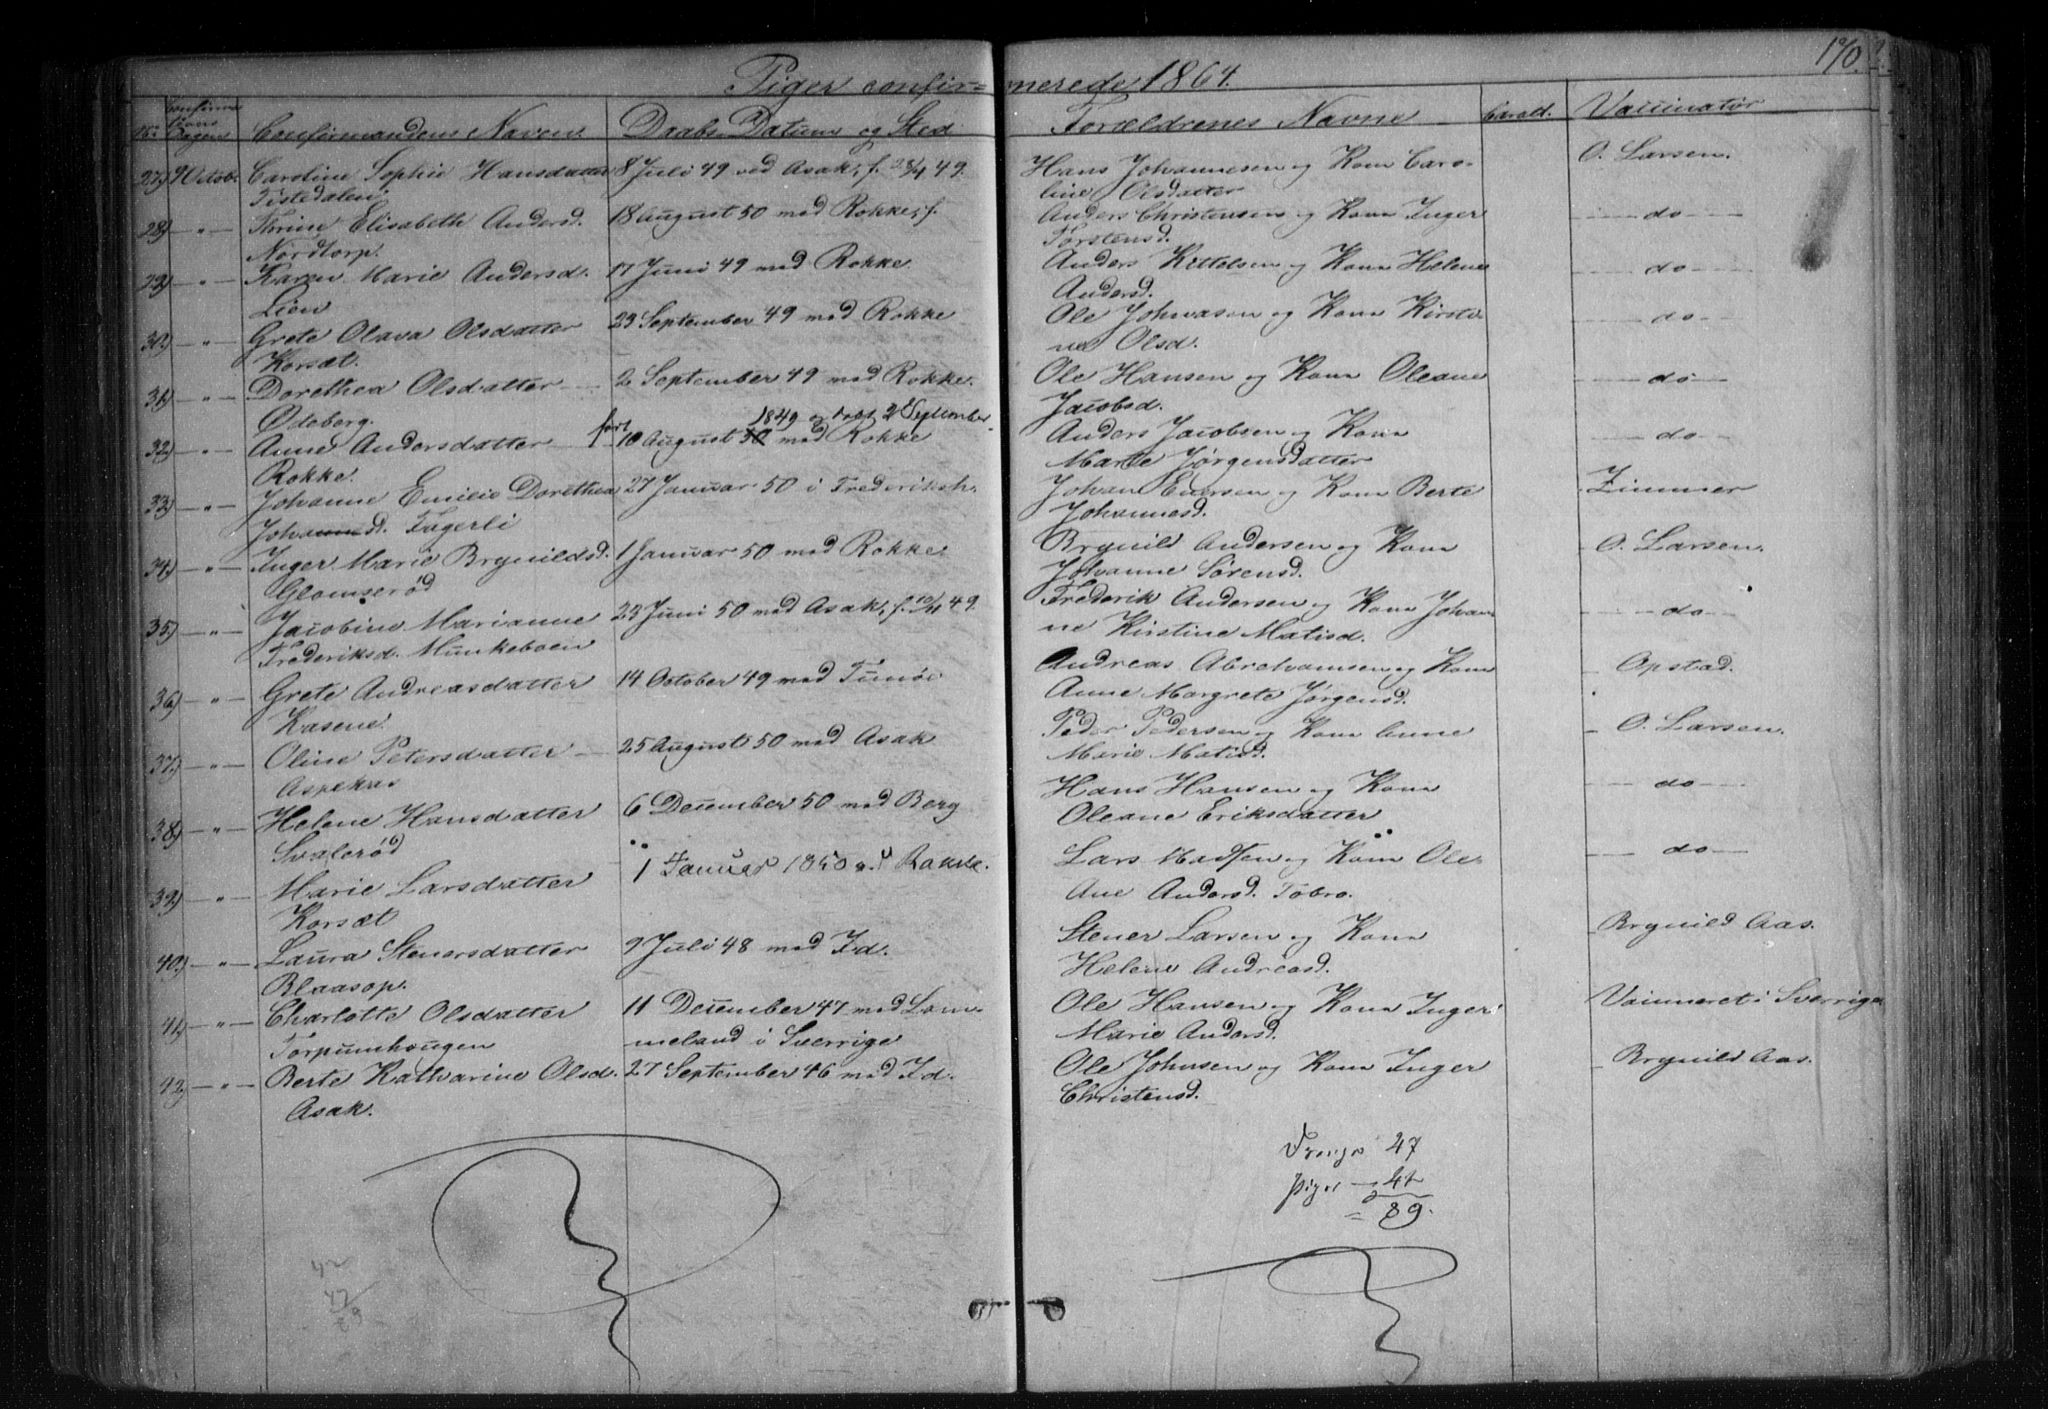 Piger confirmerede 1864.
170.
No Confirmations Dagen Confirmandens Navn Daabs Datum og Sted Forældrenes Navne Carakt. Vaccinatør
27) 9 Octob. Caroline Sophie Hansdatter 8 Juli 49 ved Asak, f. 28/4 49. Hans Johannesen og Kone Caro- O. Larsen.
Tistedalen line Olsdatter
28) — " — Thrine Elisabeth Andersd. 18 August 50 med Rokke, f. Anders Christensen og Kone Inger — do —
Nordtorp. Torstensd.
29) — " — Karen Marie Andersd. 17 Juni 49 med Rokke Anders Kittelsen og Kone Helene — do —
Lien Andersd.
30) — " — Grete Olava Olsdatter 23 September 49 med Rokke Ole Johnason og Kone Kirsti- — do —
Korsæt. ne Olsd.
31) — " — Dorethea Olsdatter — 2 September 49 med Rokke. Ole Hansen og Kone Oleane — do —
Ødeberg. Jacobsd.
1849 og døbt 2 September
32) — " — Anne Andersdatter — født 10 August 50 med Rokke Anders Jacobsen og Kone — do —
Rokke. Marte Jørgensdatter
33) — " — Johanne Emilie Dorethea 27 Januar 50 i Frederiksh. Johan Evensen og Kone Berte Zimmer
Johannesd. Fagerli Johannesd.
34) — " — Inger Marie Brynildsd. 1 Januar 50 med Rokke Brynild Andersen og Kone O. Larsen.
Glomserød Johanne Sørensd.
35) — " — Jacobine Marianne 23 Juni 50 med Asak, f. 10/11 49. Frederik Andersen og Kone Johan- — do —
Frederiksd. Munkeboen ne Kirstine Matisd.
36) — " — Grete Andreasdatter 14 October 49 med Tunøe Andreas Abrahamsen og Kone Opstad.
Kasene. Anne Margrete Jørgensd.
37) — " — Oline Petersdatter — 25 August 50 med Asak Peder Pedersen og Kone Anne — O. Larsen.
Aspekas Marie Matisd.
38) — " — Helene Hansdatter 6 December 50 med Berg Hans Hansen og Kone — do —
Svalerød Oleane Eriksdatter
39) — " — Marie Larsdatter 1 Januar 1850 m. Rokke. Lars Madsen og Kone Ole- — do —
Korsæt ane Andersd. Tobro.
40) — " — Laura Stenersdatter 9 Juli 48 med Id. Stener Larsen og Kone — Brynild Aas.
Blaasop. Helene Andreasd.
41) — " — Charlotte Olsdatter 11 December 47 med Lom- Ole Hansen og Kone Inger Vaccineret i Sverrige
Torpumhougen meland i Sverrige Marie Andersd.
42) — " — Berte Katharine Olsd. 27 September 46 med Id. Ole Johnsen og Kone Inger — Brynild Aas.
Asak. Christensd.
Drenge 47
Piger — 42
= 89.
42
47
89